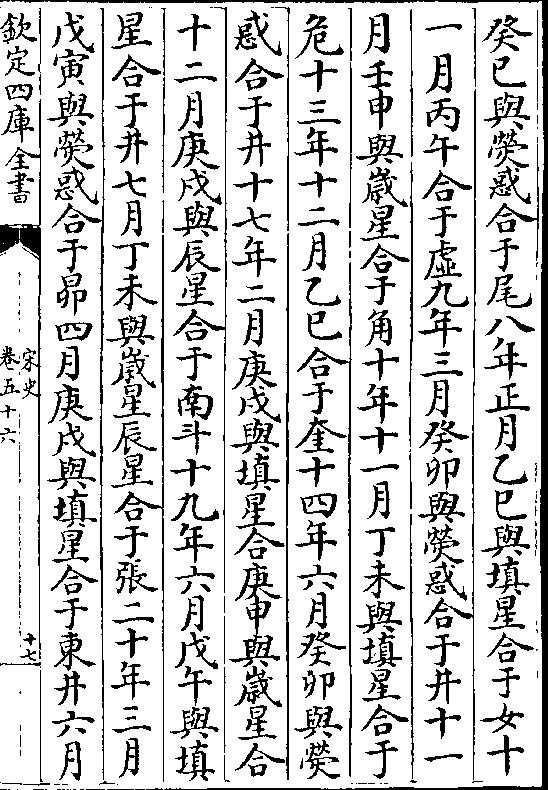 癸巳與熒惑合于尾八年正月乙巳與填星合于女十
一月丙午合于虛九年三月癸卯與熒惑合于井十一
月壬申與歲星合于角十年十一月丁未與填星合于
危十三年十二月乙巳合于奎十四年六月癸卯與熒
惑合于井十七年二月庚戌與填星合庚申與歲星合
十二月庚戌與辰星合于南斗十九年六月戊午與填
星合于井七月丁未與歲星辰星合于張二十年三月
戊寅與熒惑合于昴四月庚戌與填星合于東井六月
欽定四庫全書
宋史
卷五十六
十七